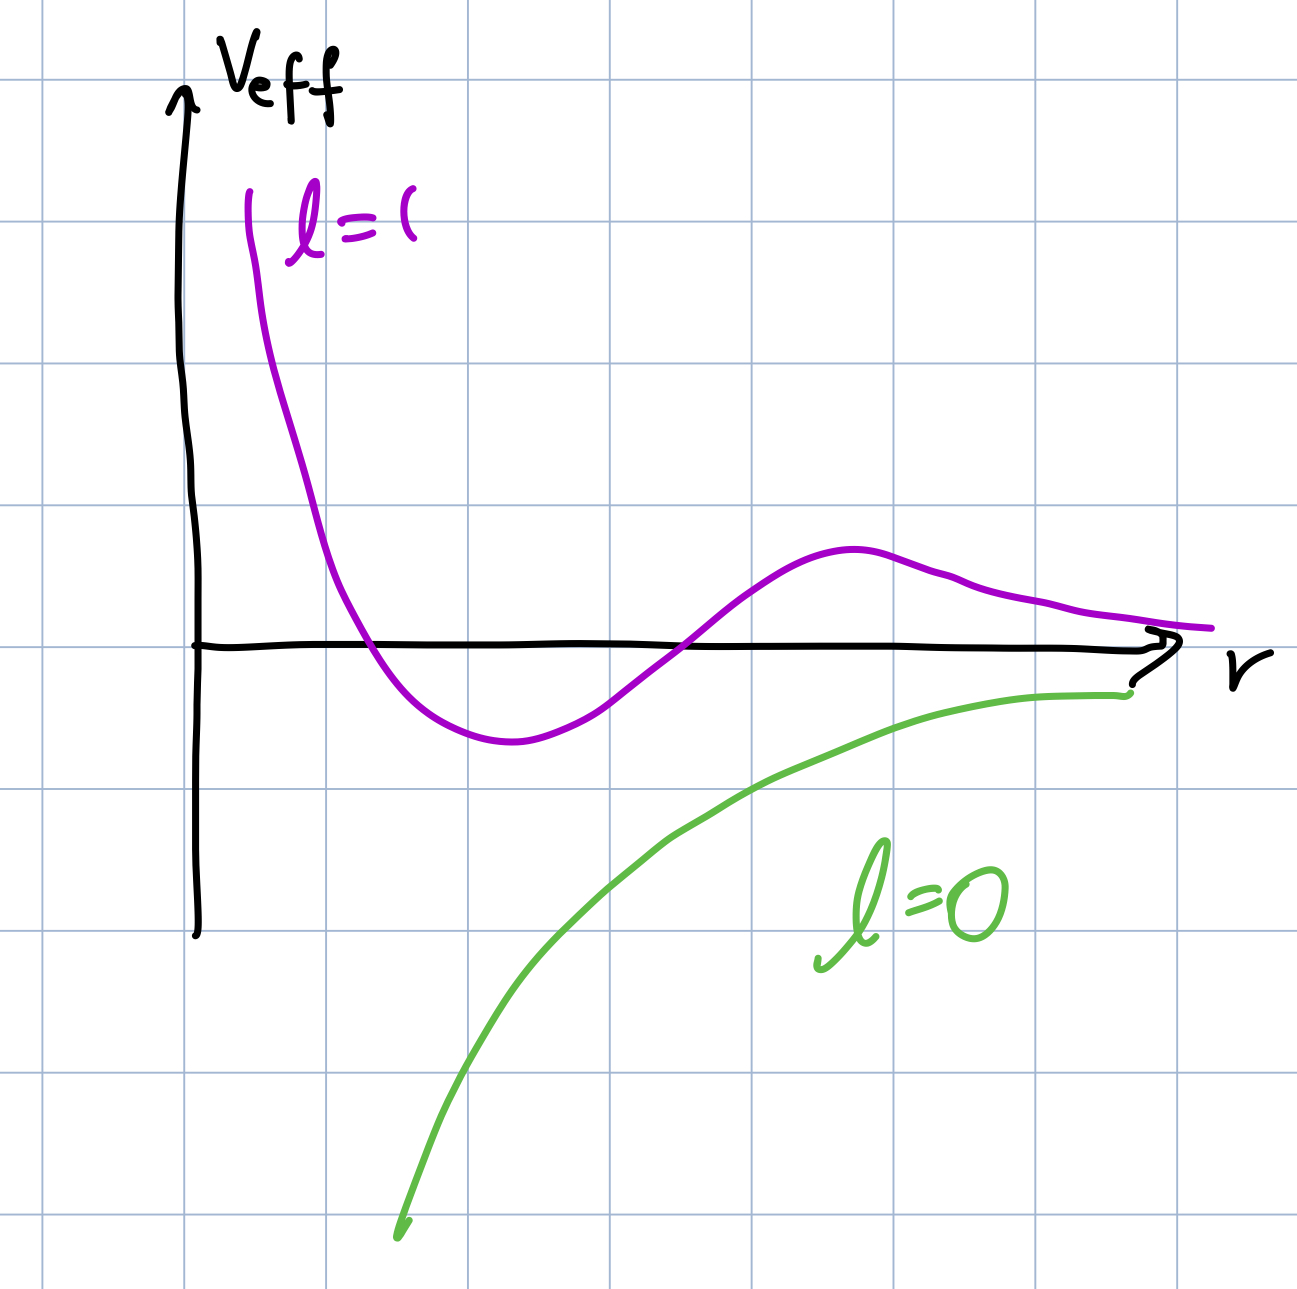 Veff
l=(
r
l=0